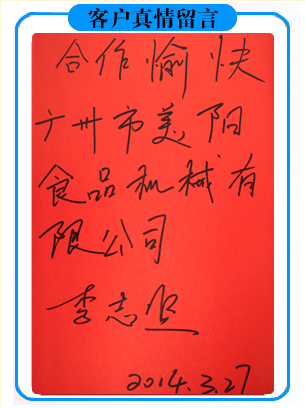 客户真情留言
合作愉快
广州市美阳
食品机械有
限公司
李志
2014.3.27